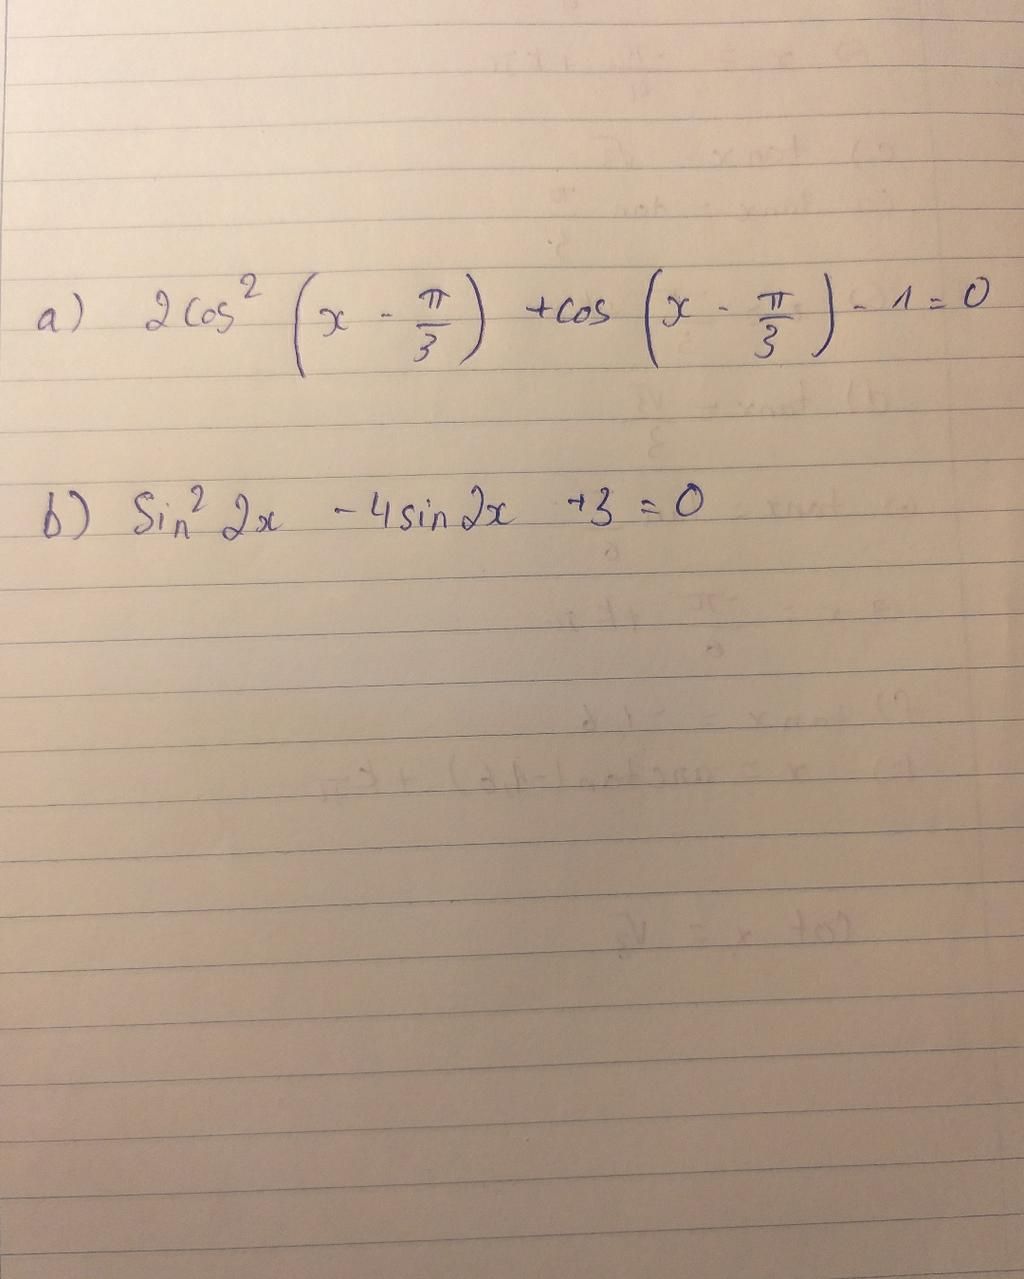 a) 2cos² (x - π/3) + cos (x - π/3) - 1 = 0
b) Sin² 2x - 4sin 2x + 3 = 0